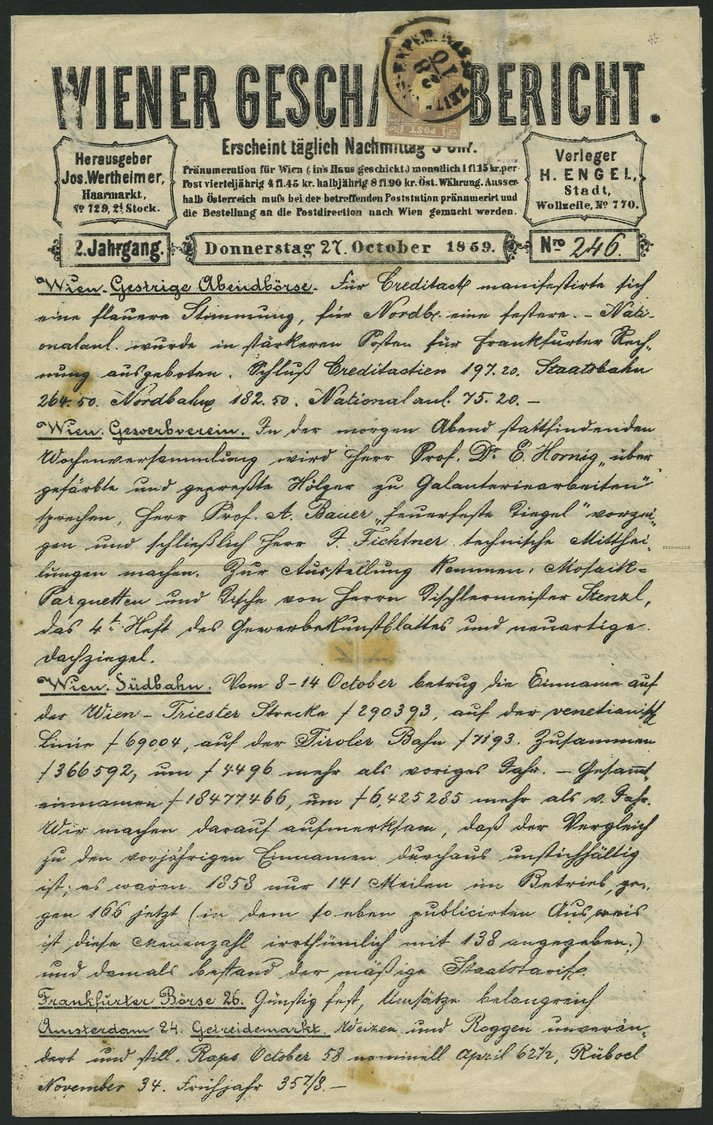 WIENER GESCHA BERICHT.
Erscheint täglich Nachmittag 5 Uhr.
Herausgeber
Jos. Wertheimer,
Haarmarkt,
No 729, 2t Stock.
Pränumeration für Wien (ins Haus geschickt) monatlich 1 fl 15 kr. per
Post vierteljährig 4 fl 45 kr. halbjährig 8 fl 90 kr. Öst. Währung. Ausser-
halb Österreich muſs bei der betreffenden Poststation pränumerirt und
die Bestellung an die Postdirection nach Wien gemacht werden.
Verleger
H. ENGEL,
Stadt,
Wollzeile, No 770.
2. Jahrgang.
Donnerstag 27. October 1859.
Nro 246.
Wien. Gestrige Abendbörse. Für Creditact manifestirte sich
eine flauere Stimmung, für Nordb. eine festere. – Nati-
onalanl. wurde in stärkeren Posten für Frankfurter Rech-
nung ausgeboten. Schluß Creditactien 197.20. Staatsbahn
264.50. Nordbahn 182.50. Nationalanl. 75.20. –
Wien. Gewerbverein. In der morgen Abend stattfindenden
Wochenversammlung wird Herr Prof. Dr. E. Hornig „über
gefärbte und gepreßte Hölzer zu Galanteriearbeiten"
sprechen, Herr Prof. A. Bauer „feuerfeste Tiegel" vorzei-
gen und schließlich Herr J. Fichtner technische Mitthei-
lungen machen. Zur Ausstellung kommen: Mosaik-
Parquetten und Tische von Herrn Tischlermeister Stenzl,
das 4t Heft des Gewerbekunstblattes und neuartige
Dachziegel.
Wien. Südbahn. Vom 8-14 October betrug die Einname auf
der Wien – Triester Strecke f 290393, auf der venetianisch
Linie f 69004, auf der Tiroler Bahn f 7193. Zusammen
f 366592, um f 4496 mehr als voriges Jahr. – Gesammt-
einnamen f 18477466, um f 6,425285 mehr als v. Jahr.
Wir machen darauf aufmerksam, daß der Vergleich
zu den vorjährigen Einnamen durchaus unstichhältig
ist; es waren 1858 nur 141 Meilen im Betrieb, ge-
gen 166 jetzt (in dem so eben publicirten Ausweis
ist diese Meilenzahl irrthümlich mit 138 angegeben,)
und damals bestand der mäßige Staatstarif.
Frankfurter Börse 26. Günstig fest, Umsätze belangreich
Amsterdam 24. Getreidemarkt. Weizen und Roggen unverän-
dert und still. Raps October 58 nominell April 62½, Rüboel
November 34. Frühjahr 357/8. –